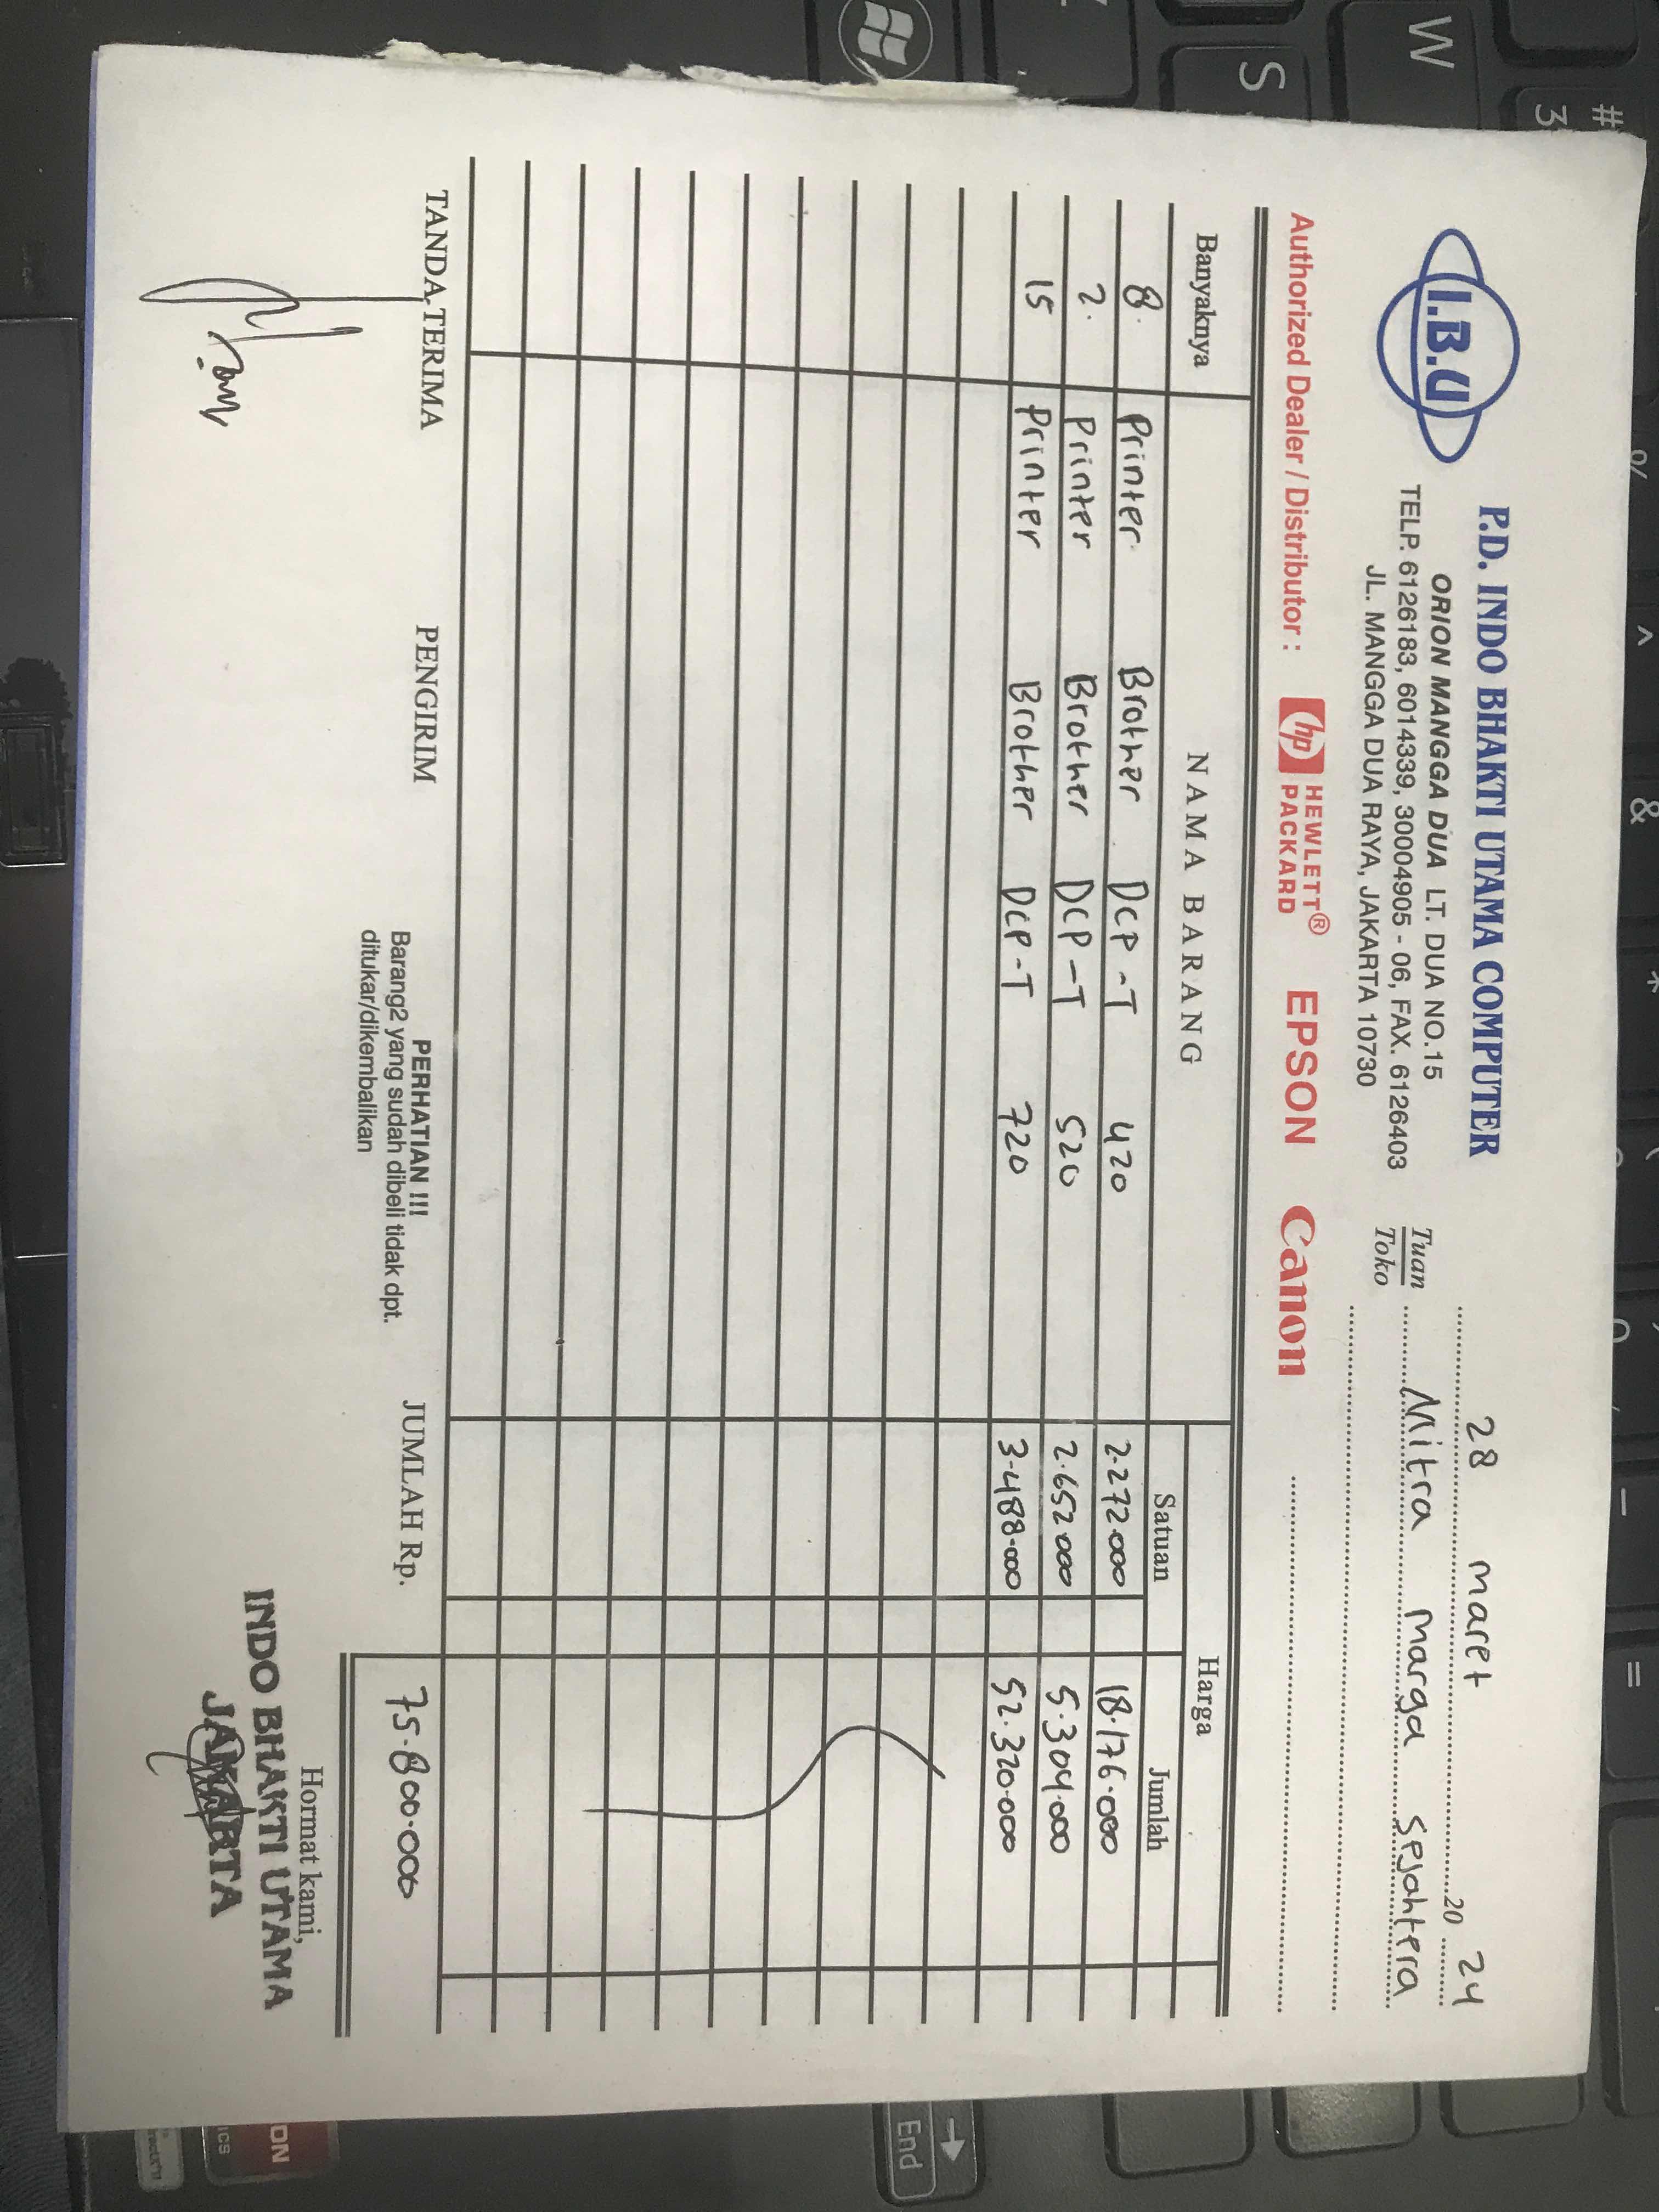 I.B.U
P.D. INDO BHAKTI UTAMA COMPUTER
ORION MANGGA DUA LT. DUA NO.15
TELP. 6126183, 6014339, 30004905 - 06, FAX. 6126403
JL. MANGGA DUA RAYA, JAKARTA 10730
28 maret 20 24
Tuan
Toko
Mitra Marga Sejahtera
Authorized Dealer / Distributor : hp HEWLETT® PACKARD EPSON Canon
Banyaknya NAMA BARANG Harga
Satuan Jumlah
8. Printer Brother DCP-T 420 2.272.000 18.176.000
2. Printer Brother DCP-T 520 2.652.000 5.304.000
15 Printer Brother DCP-T 720 3.488.000 52.320.000
TANDA TERIMA PENGIRIM JUMLAH Rp. 75.800.000
PERHATIAN !!!
Barang2 yang sudah dibeli tidak dpt.
ditukar/dikembalikan
Hormat kami,
INDO BHAKTI UTAMA
JAKARTA
W
S
#
3
%
^
&
*
(
-
=
End
ON
ICS